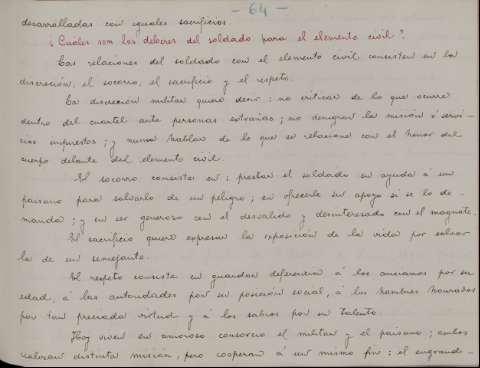 - 64 -
desarrolladas con iguales sacrificios.
¿Cuáles son los deberes del soldado para el elemento civil?
Las relaciones del soldado con el elemento civil consisten en la
discreción, el socorro, el sacrificio y el respeto.
La discreción militar quiere decir: no criticar de lo que ocurre
dentro del cuartel ante personas extrañas; no denigrar la misión ó servi-
cios impuestos; y nunca hablar de lo que se relacione con el honor del
cuerpo delante del elemento civil.
El socorro consiste en: prestar el soldado su ayuda á un
paisano para salvarlo de un peligro; en ofrecerle su apoyo si se lo de-
manda; y en ser generoso con el desvalido y desinteresado con el magnate.
El sacrificio quiere expresar la exposición de la vida por salvar
la de un semejante.
El respeto consiste en guardar deferencia á los ancianos por su
edad, á las autoridades por su posición social, á los hombres honrados
por tan preciada virtud y á los sabios por su talento.
Hoy viven en amoroso consorcio el militar y el paisano; ambos
valoran distinta misión, pero cooperan á un mismo fin: el engrande-